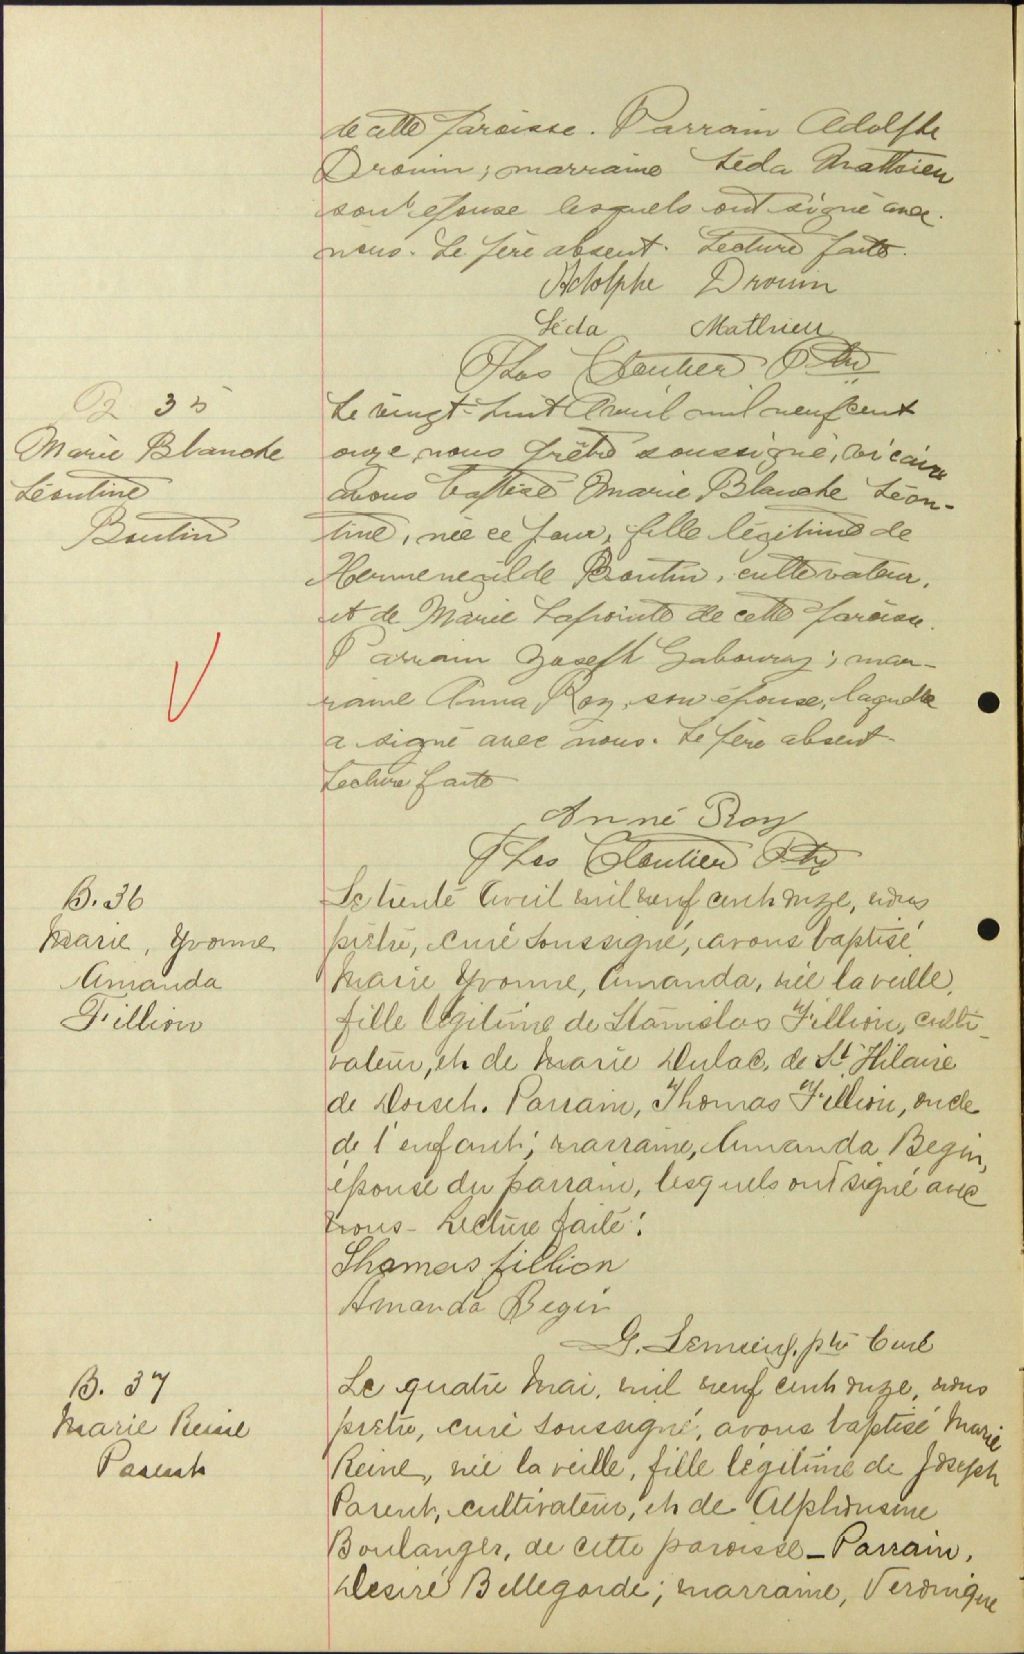 de cette paroisse. Parrain Adolphe
Drouin; marraine Léda Mathieu
son épouse lesquels ont signé avec
nous. Le père absent. Lecture faite.
Adolphe Drouin
Léda Mathieu
Thos Cloutier Ptre
B 35
Marie Blanche
Léontine
Boutin
Le vingt-huit Avril mil neuf cent
onze, nous prêtre soussigné, vicaire
avons baptisé Marie Blanche Léon-
tine, née ce jour, fille légitime de
Hermenegilde Boutin, cultivateur,
et de Marie Lapointe de cette paroisse.
Parrain Joseph Gaboury; mar-
raine Anna Roy, son épouse, laquelle
a signé avec nous. Le père absent.
Lecture faite
Anné Roy
Thos Cloutier Ptre
B. 36
Marie, Yvonne
Amanda
Fillion
Le trente Avril mil neuf cent onze, nous
prêtre, curé soussigné, avons baptisé
Marie Yvonne, Amanda, née la veille,
fille légitime de Stanislas Fillion, culti-
vateur, et de Marie Dulac, de St Hilaire
de Dorset. Parrain, Thomas Fillion, oncle
de l'enfant; marraine, Amanda Begin,
épouse du parrain, lesquels ont signé avec
nous - Lecture faite.
Thomas fillion
Amanda Begin
G. Lemieux, ptre Curé
B. 37
Marie Reine
Parent
Le quatre Mai, mil neuf cent onze, nous
prêtre, curé soussigné, avons baptisé Marie
Reine, née la veille, fille légitime de Joseph
Parent, cultivateur, et de Alphonsine
Boulanger, de cette paroisse - Parrain,
Desiré Bellegarde; marraine, Veronique